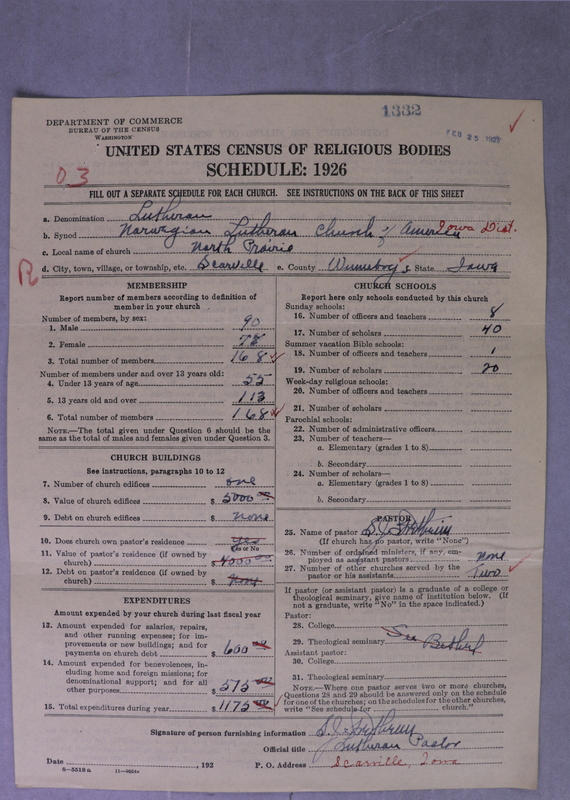 1332
DEPARTMENT OF COMMERCE
BUREAU OF THE CENSUS
WASHINGTON
FEB 25 1927
UNITED STATES CENSUS OF RELIGIOUS BODIES
SCHEDULE: 1926
03
FILL OUT A SEPARATE SCHEDULE FOR EACH CHURCH. SEE INSTRUCTIONS ON THE BACK OF THIS SHEET
a. Denomination Lutheran
b. Synod Norwegian Lutheran Church of America Iowa Dist.
c. Local name of church North Prairie
R
d. City, town, village, or township, etc. Scarville e. County Winnebago State Iowa
MEMBERSHIP
Report number of members according to definition of
member in your church
Number of members, by sex:
1. Male 90
2. Female 78
3. Total number of members 168
Number of members under and over 13 years old:
4. Under 13 years of age 55
5. 13 years old and over 113
6. Total number of members 168
NOTE.—The total given under Question 6 should be the
same as the total of males and females given under Question 3.
CHURCH BUILDINGS
See instructions, paragraphs 10 to 12
7. Number of church edifices one
8. Value of church edifices $ 5000 00
9. Debt on church edifices $ none
10. Does church own pastor's residence? Yes
Yes or No
11. Value of pastor's residence (if owned by
church) $ 4000 00
12. Debt on pastor's residence (if owned by
church) $ None
EXPENDITURES
Amount expended by your church during last fiscal year
13. Amount expended for salaries, repairs,
and other running expenses; for im-
provements or new buildings; and for
payments on church debt $ 600 00
14. Amount expended for benevolences, in-
cluding home and foreign missions; for
denominational support; and for all
other purposes $ 575 00
15. Total expenditures during year $ 1175 00
CHURCH SCHOOLS
Report here only schools conducted by this church
Sunday schools:
16. Number of officers and teachers 8
17. Number of scholars 40
Summer vacation Bible schools:
18. Number of officers and teachers 1
19. Number of scholars 20
Week-day religious schools:
20. Number of officers and teachers
21. Number of scholars
Parochial schools:
22. Number of administrative officers
23. Number of teachers—
a. Elementary (grades 1 to 8)
b. Secondary
24. Number of scholars—
a. Elementary (grades 1 to 8)
b. Secondary
PASTOR
25. Name of pastor
(If church has no pastor, write "None")
26. Number of ordained ministers, if any, em-
ployed as assistant pastors none
27. Number of other churches served by the
pastor or his assistants Two
If pastor (or assistant pastor) is a graduate of a college or
theological seminary, give name of institution below. (If
not a graduate, write "No" in the space indicated.)
Pastor:
28. College
29. Theological seminary See Bethel
Assistant pastor:
30. College
31. Theological seminary
NOTE.—Where one pastor serves two or more churches,
Questions 28 and 29 should be answered only on the schedule
for one of the churches; on the schedules for the other churches,
write "See schedule for church."
Signature of person furnishing information
Official title Lutheran Pastor
Date , 192 P. O. Address Scarville, Iowa